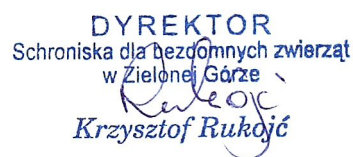 DYREKTOR
Schroniska dla bezdomnych zwierząt
w Zielonej Górze
Krzysztof Rukojć